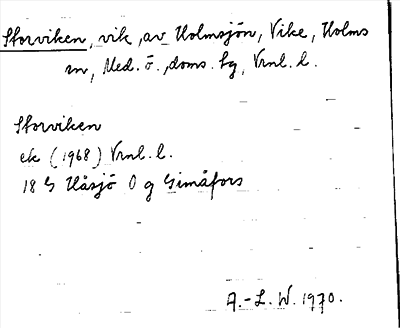 Storviken, vik, av Holmsjön, Vike, Holms
m, Med. ö. doms. hg, Vrnl. l.
Storviken
ek (1968) Vrnl. l.
18 G Håsjö O g Gimåfors
A.-L. W. 1970.